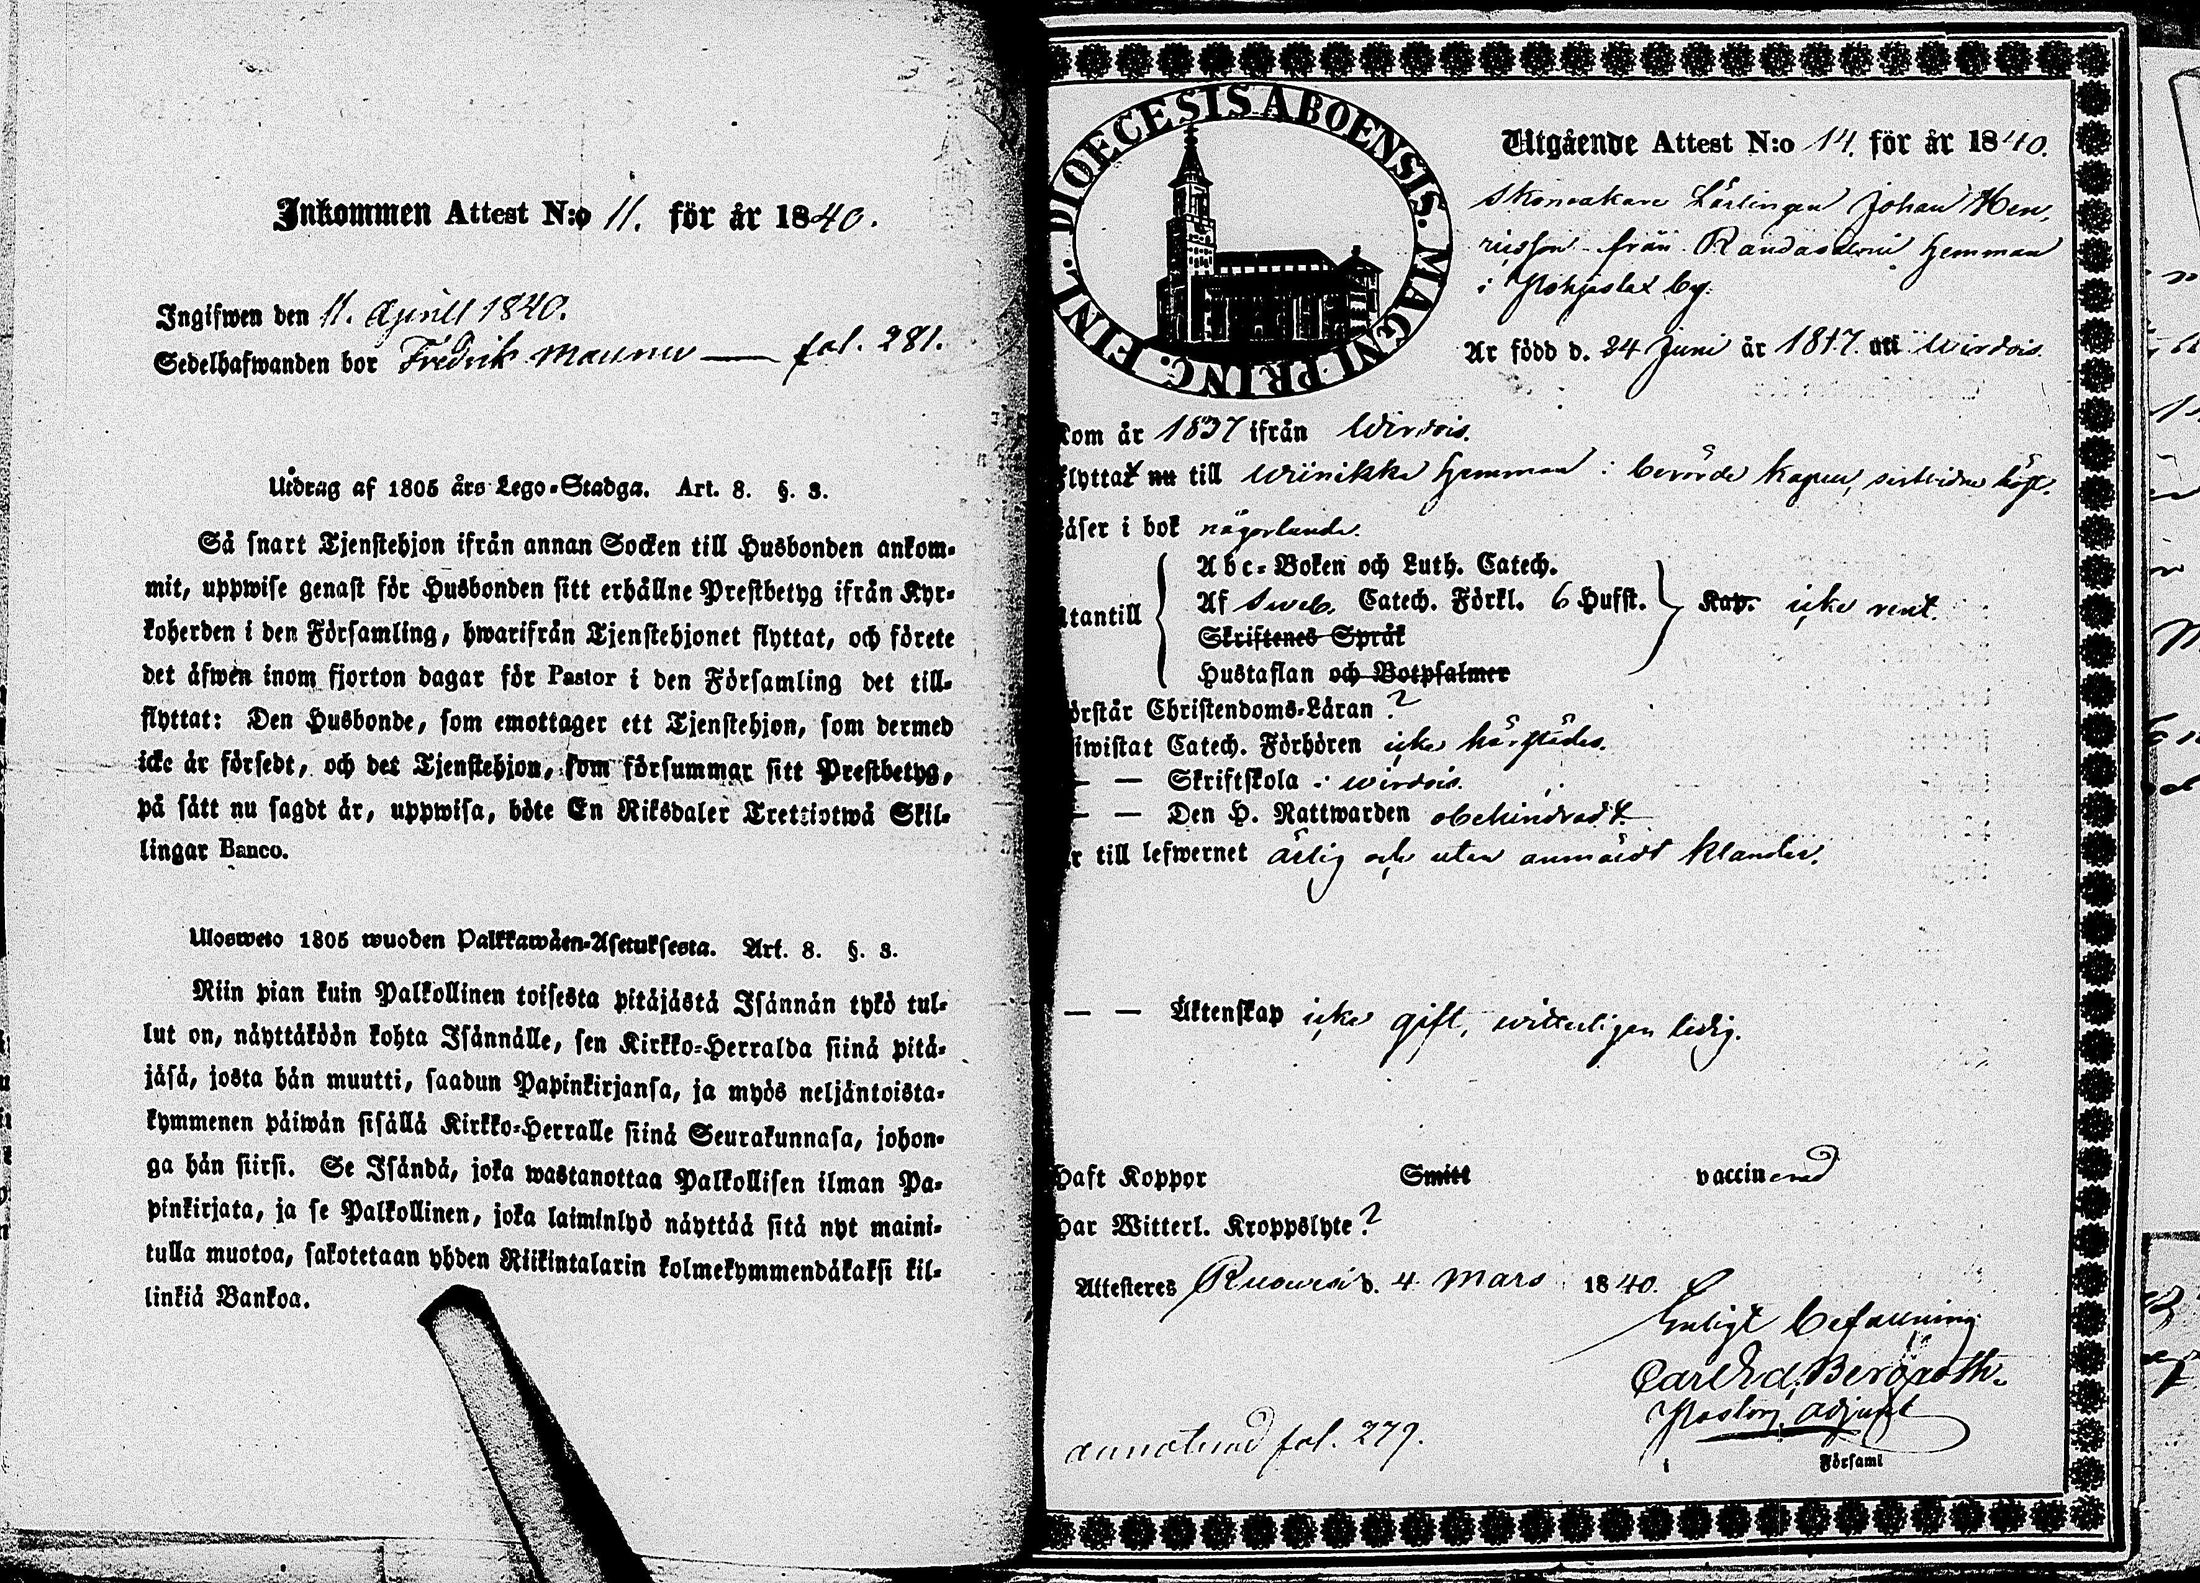 Inkommen Attest N:o 11. för år 1840.
Ingifwen den 11. Aprill 1840.
Sedelhafwanden bor Fredrik fol. 281.
Utdrag af 1805 års Lego-Stadga. Art. 8. §. 3.
Så snart Tjenstehjon ifrån annan Socken till Husbonden ankom-
mit, uppwise genast för Husbonden sitt erhållne Prestbetyg ifrån Kyr-
koherden i den Församling, hwarifrån Tjenstehjonet flyttat, och förete
det äfwen inom fjorton dagar för Pastor i den Församling det till-
flyttat: Den Husbonde, som emottager ett Tjenstehjon, som dermed
icke är försedt, och det Tjenstehjon, som försummar sitt Prestbetyg,
på sätt nu sagdt är, uppwisa, böte En Riksdaler Trettiotwå Skil-
lingar Banco.
Ulosweto 1805 wuoden Palkkawäen-Asetuksesta. Art. 8. §. 3.
Niin pian kuin Palkollinen toisesta pitäjästä Isännän tykö tul-
lut on, näyttäköön kohta Isännälle, sen Kirkko-Herralda siinä pitä-
jäsä, josta hän muutti, saadun Papinkirjansa, ja myös neljäntoista-
kymmenen päiwän sisällä Kirkko-Herralle siinä Seurakunnasa, johon-
ga hän siirsi. Se Isändä, joka wastanottaa Palkollisen ilman Pa-
pinkirjata, ja se Palkollinen, joka laiminlyö näyttää sitä nyt maini-
tulla muotoa, sakotetaan yhden Riikintalarin kolmekymmendäkaksi kil-
linkiä Bankoa.
DIOECESIS ABOENSIS. MAGNI PRINC. FINL.
Utgående Attest N:o 14. för år 1840.
Skomakare Lärlingen Johan Hen-
ricsson från hemman
i Pohjaslax by.
Är född d. 24 Juni år 1817. uti Wirdois.
Kom år 1837 ifrån Wirdois.
flyttat nu till Wiinikka hemman i berörde
Läser i bok någorlunda.
Abc-Boken och Luth. Catech.
Utantill Af Sweb. Catech. Förkl. 6 Hufst. Kap. icke rent.
Skriftenes Språk
Hustaflan och Botpsalmer
Förstår Christendoms-Läran ?
Biwistat Catech. Förhören icke härstädes.
— — Skriftskola i Wirdois.
— — Den H. Nattwarden obehindradt.
Är till lefwernet ärlig och utan anmärdt klander.
— — Äktenskap icke gift, witterligen ledig.
Haft Koppor Smitt vaccinerad
Har Witterl. Kroppslyte ?
Attesteres Ruowesi d. 4 Mars 1840.
Enligt befallning
Carl Ed. Bergroth.
Pastors adjunkt
i Församl
annoterad fol. 279.